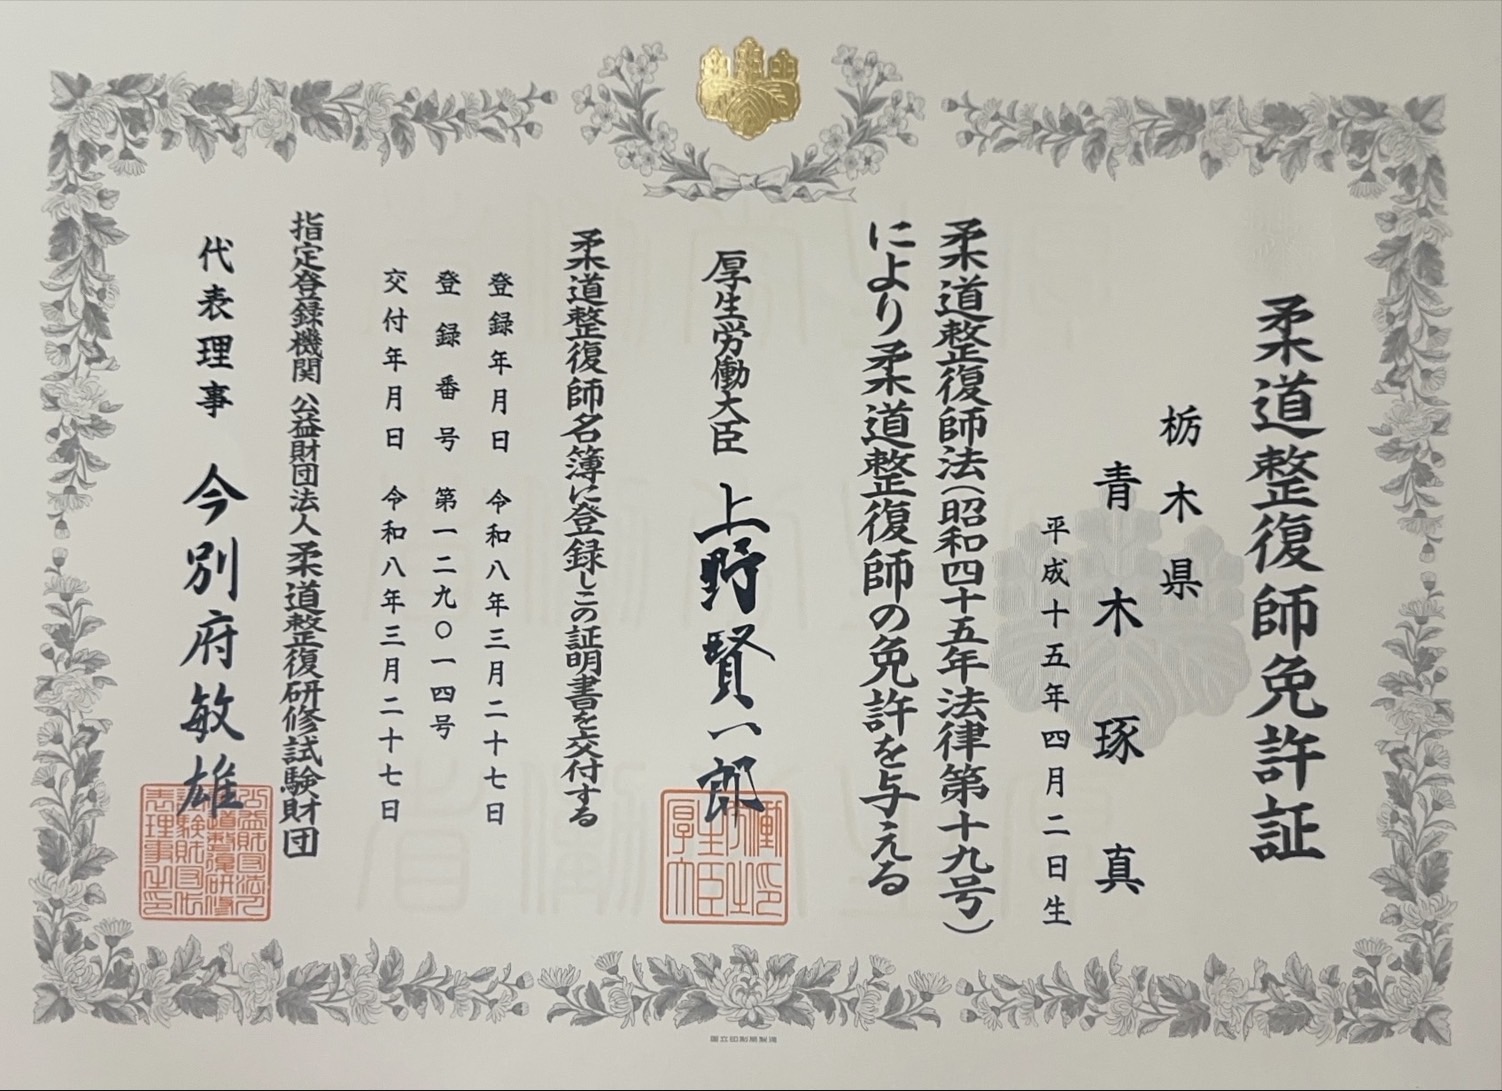 柔道整復師免許証
栃木県
青木琢真
平成十五年四月二日生
柔道整復師法(昭和四十五年法律第十九号)
により柔道整復師の免許を与える
厚生労働大臣 上野賢一郎
柔道整復師名簿に登録しこの証明書を交付する
登録年月日 令和八年三月二十七日
登録番号 第一二九〇一四号
交付年月日 令和八年三月二十七日
指定登録機関 公益財団法人 柔道整復研修試験財団
代表理事 今別府敏雄
国立印刷局製造